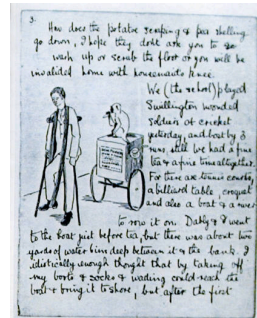 3.
How does the potatoe scraping & pea shelling
go down, I hope they don't ask you to
wash up or scrub the floor or you will be
invalided home with housemaids knee.
We (the school) played
Swillington wounded
soldiers at cricket
yesterday, and beat by 3
runs, still we had a fine
tea & a fine time altogether.
For there are tennis courts,
a billiard table, croquet
and also a boat & a river
to row it on. Dahly & I went
to the boat just before tea, but there was about two
yards of water him deep between it & the bank. I
idiotically enough thought that by taking off
my boots & socks & wading could reach the
boat & bring it to shore, but after the first